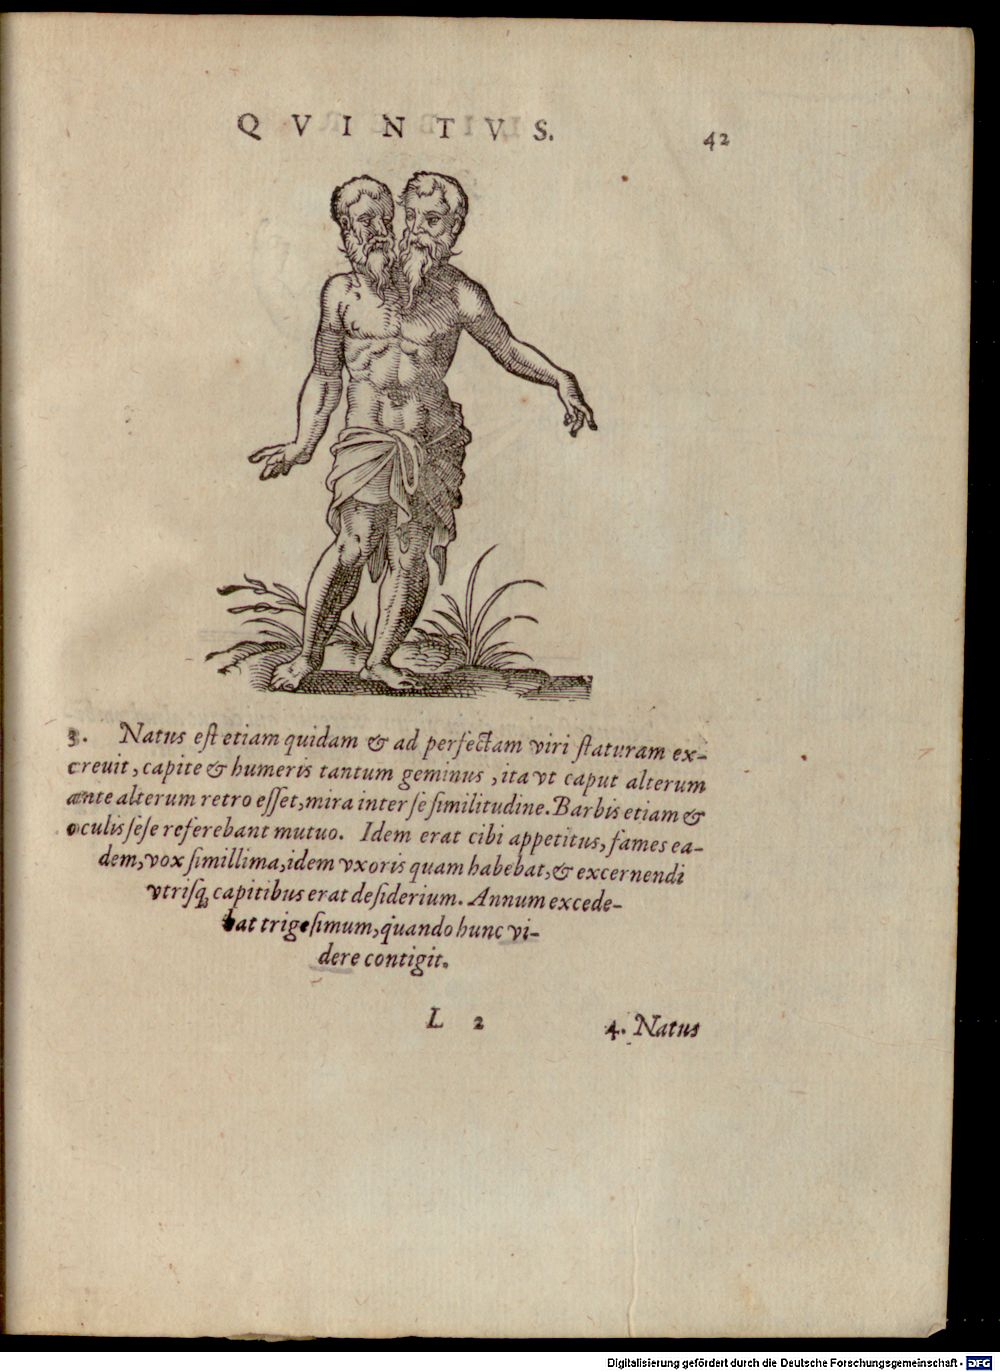 QVINTVS.
42
3. Natus est etiam quidam & ad perfectam viri staturam ex-
creuit, capite & humeris tantum geminus, ita vt caput alterum
ante alterum retro esset, mira inter se similitudine. Barbis etiam &
oculis sese referebant mutuo. Idem erat cibi appetitus, fames ea-
dem, vox simillima, idem vxoris quam habebat, & excernendi
vtrisq; capitibus erat desiderium. Annum excede-
bat trigesimum, quando hunc vi-
dere contigit.
L 2
4. Natus
Digitalisierung gefördert durch die Deutsche Forschungsgemeinschaft - DFG